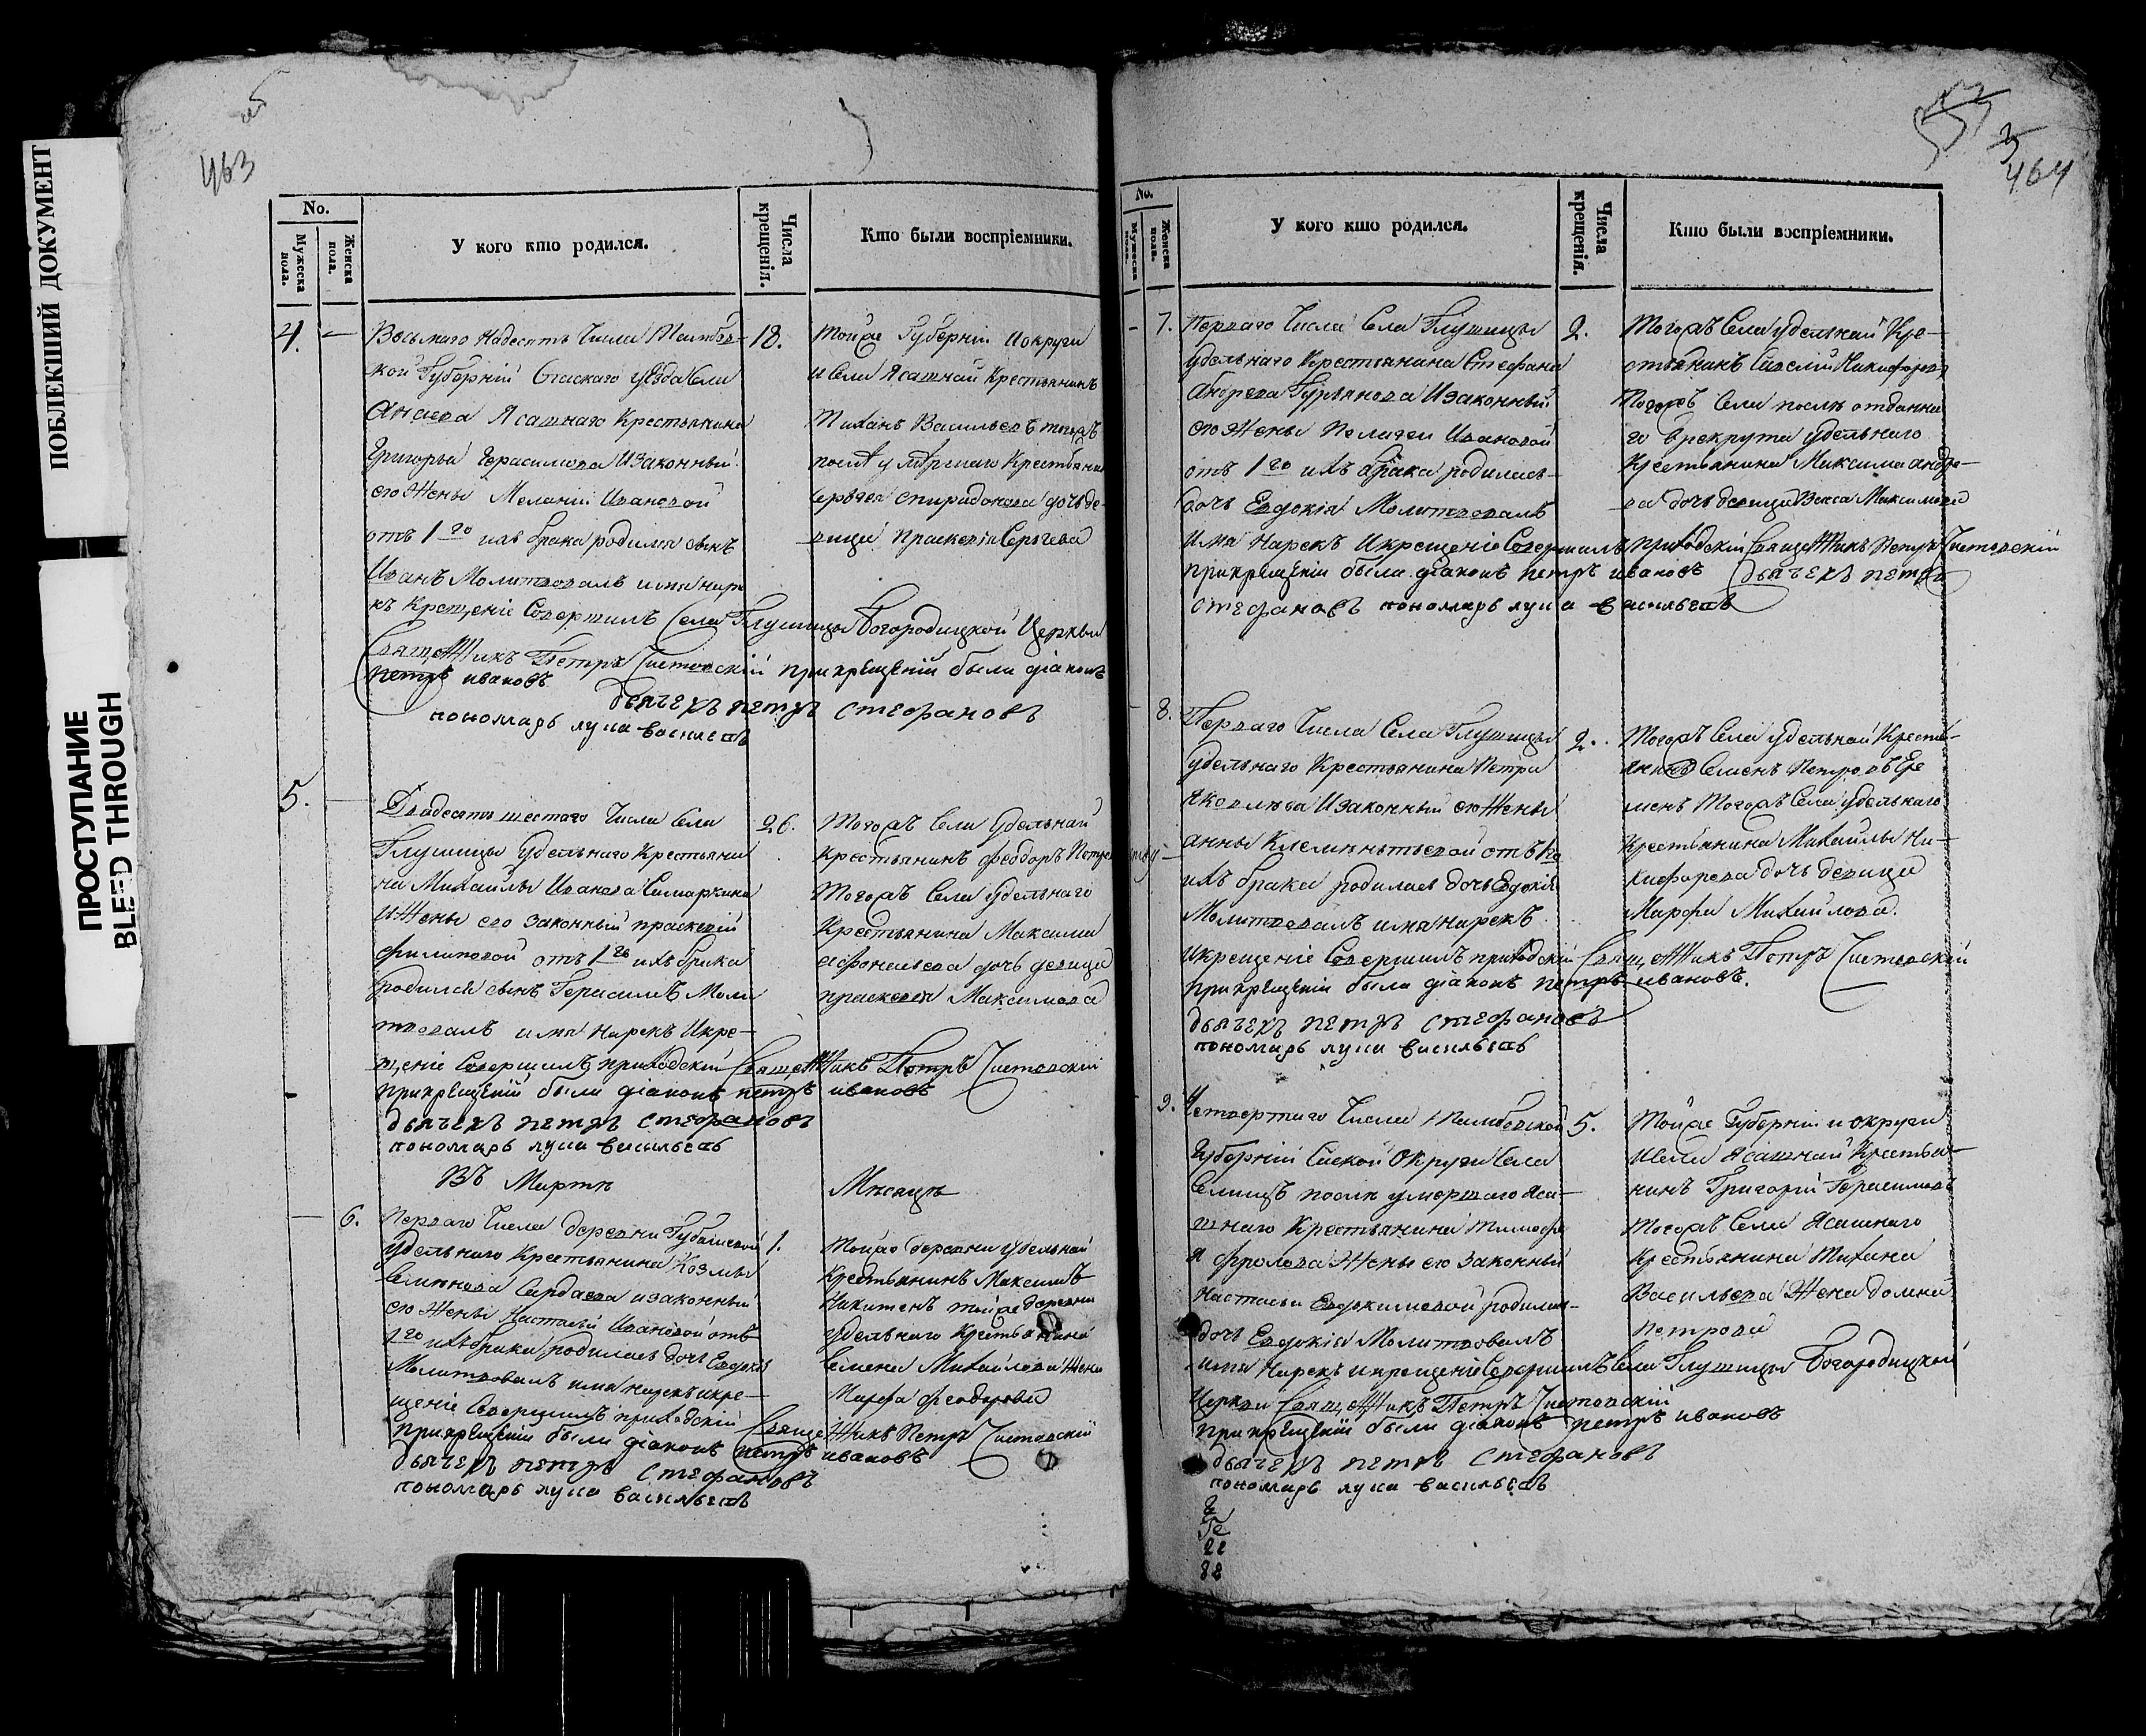 ПОБЛЕКШИЙ ДОКУМЕНТ
ПРОСТУПАНИЕ
BLEED THROUGH
463
No.
Мужеска пола.
Женска пола.
У кого кто родился.
Числа крещенія.
Кто были воспріемники.
4.
Восьмаго надесять Числа Тамбов-
кой Губерніи Спаскаго уезда Села
Анаева Ясашнаго Крестьянина
Григорья Герасимова Изаконный
его Жены Меланіи Ивановой
отъ 1го ихъ брака родился сынъ
Иванъ Молитвовалъ имя наре
къ Крещеніе Совершилъ Села Глушицы Богородицкой Церкви
Священникъ Петръ Чистовскій прикрещеніи были діаконъ
петръ ивановъ
дьячекъ петръ стефановъ
пономарь лука васильевъ
18.
Тойже Губерніи Иокруги
и Села Ясашнай Крестьянинъ
Тиханъ Васильевъ тогожъ
после умершаго Крестьянин
сергея спиридонова дочь де-
вица Праскевія Сергеева
5.
Двадесять шестаго Числа Села
Глушицы Удельнаго Крестьяни
на Михайлы Иванова Самаркина
Жены его законный праскевіи
филиповой отъ 1го ихъ брака
родился сынъ Герасимъ Моли
твовалъ имя нарекъ Икре-
щеніе Совершилъ приходскій Священникъ Петръ Чистовскій
прикрещеніи были діаконъ петръ ивановъ
дьячекъ петръ стефановъ
пономарь лука васильевъ
26.
Тогожъ Села Удельнай
Крестьянинъ феодоръ Петров
Тогожъ Села Удельнаго
Крестьянина Максима
афонасьева дочь девица
праскевія Максимова
Въ Марте Месяце
6.
Перваго Числа деревни
удельнаго Крестьянина Козмы
Семенова Сардаева изаконный
его Жены Настасьи Ивановой отъ
1го ихъ брака родилась дочь Евдокія
Молитвовалъ имя нарекъ икре-
щеніе Совершилъ приходскій Священникъ Петръ Чистовскій
прикрещеніи были діаконъ петръ ивановъ
дьячекъ петръ стефановъ
пономарь лука васильевъ
1.
Тойже деревни удельнай
Крестьянинъ Максимъ
Никитенъ тойже деревни
удельнаго Крестьянина
Семена Михайлова Жена
Марфа феодорова
464
No.
Мужеска пола.
Женска пола.
У кого кто родился.
Числа крещенія.
Кто были воспріемники.
7.
Перваго Числа Села Глушицы
удельнаго Крестьянина Стефана
Андреева Гурьянова Изаконный
его Жены Пелагеи Ивановой
отъ 1го ихъ брака родилась
дочь Евдокія Молитвовалъ
имя Нарекъ Икрещеніе Совершилъ приходскій Священникъ Петръ Чистовскій
прикрещеніи были діаконъ петръ ивановъ дьячекъ петръ
стефановъ пономарь лука васильевъ
2.
Тогожъ Села удельнай Кре-
стьянинъ Савелій Никифоров
Тогожъ Села после отданна
го врекруты удельнаго
Крестьянина Максима андре-
ва дочь девица Васса Максимова
8.
Перваго Числа Села Глушицы
Удельнаго Крестьянина Петра
Яковлева Изаконный его Жены
анны Клементьевой отъ 1го
ихъ брака родилась дочь Евдокія
Молитвовалъ имя нарекъ
икрещеніе Совершилъ приходскій Священникъ Петръ Чистовскій
прикрещеніи были діаконъ петръ ивановъ.
дьячекъ петръ стефановъ
пономарь лука васильевъ
2.
Тогожъ Села Удельнай Кресть-
янинъ Семенъ Петровъ
Тогожъ Села удельнаго
Крестьянина Михайлы Ни-
кифорова дочь девица
Марфа Михайлова.
9.
Четвертаго Числа Тамбовской
Губерніи Округи Села
после умершаго Яса-
шнаго Крестьянина тимофе
я фролова Жены его законный
Настасьи Евдокимовой родилась
дочь Евдокія Молитвовалъ
имя Нарекъ икрещеніе Совершилъ Села Глушицы Богородицкой
Церкви Священникъ Петръ Чистовскій
прикрещеніи были діаконъ петръ ивановъ
дьячекъ петръ стефановъ
пономарь лука васильевъ
5.
Тойже Губерніи и округи
иСела Ясашнай Крестья-
нинъ Григорій Герасимовъ
Тогожъ Села Ясашнаго
Крестьянина Тихана
Васильева Жена домна
Петрова